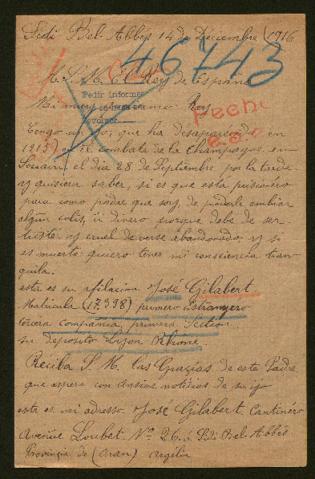 Sidi Bel-Abbes 14 de Diciembre 1916
46743
A. S. M. El Rey de Espana
Pedir informes
Mi muy Rey
Tengo un ijo, que ha desaparecido en
1915, en el combate de la Champagne, en
Souain, el dia 28 de Septiembre por la tarde
y quisiera saber, si es que esta prisionero
para como padre que soy, de poderle embiar
algun colis, u dinero porque debe de ser
triste y cruel de verse abandonado, y si
es muerto quiero tener mi consciencia tran
quila.
esta es su afiliacion José Gilabert
Matricula (17398) primero Estrangero
tercera compania, primera Section
su deposito Lyon Rhône
Reciba S. M. las Grazias de este Padre
que espera con ansias noticias de su ijo
esta es mi adresse José Gilabert, Cantinéro
Avenue Loubet, No 26. Sidi Bel-Abbès
Provinçia de (Oran) Argelia